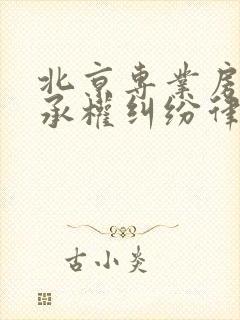 北京专業房
承權纠纷律
古小炎